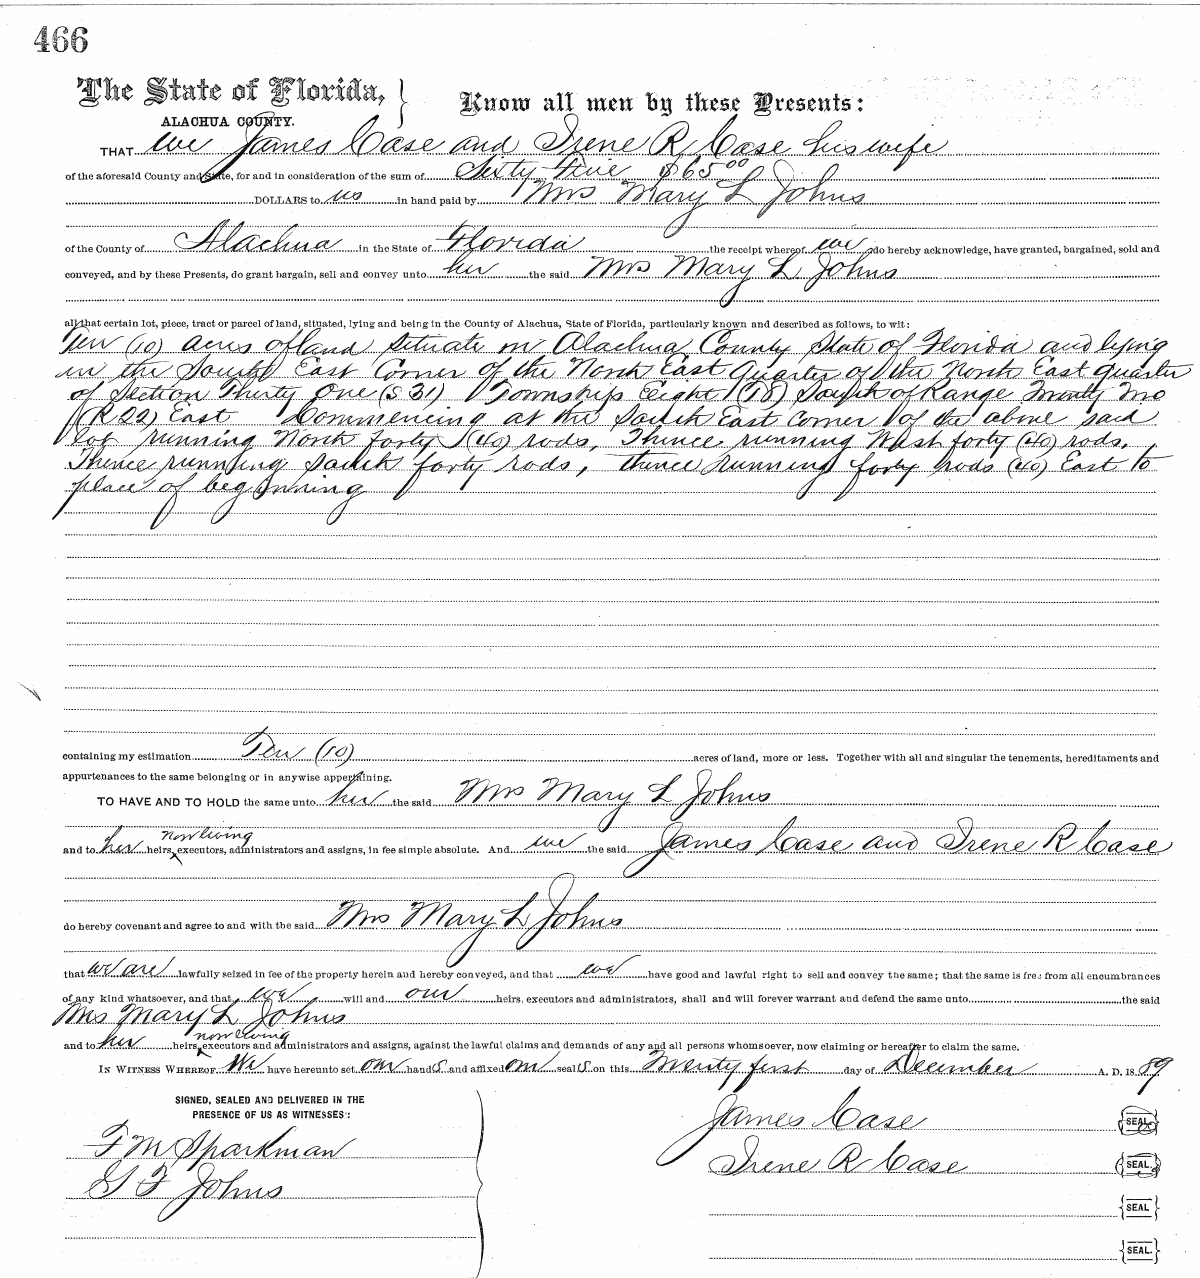 466
The State of Florida,
Know all men by these Presents:
ALACHUA COUNTY.
THAT we James Case and Irene R Case his wife
of the aforesaid County and State, for and in consideration of the sum of Sixty Five $65.00
DOLLARS to us in hand paid by Mrs Mary L Johns
of the County of Alachua in the State of Florida the receipt whereof we do hereby acknowledge, have granted, bargained, sold and
conveyed, and by these Presents, do grant bargain, sell and convey unto her the said Mrs Mary L Johns
all that certain lot, piece, tract or parcel of land, situated, lying and being in the County of Alachua, State of Florida, particularly known and described as follows, to wit:
Ten (10) acres of land situate in Alachua County State of Florida and lying
in the South East Corner of the North East Quarter of the North East quarter
of Section Thirty One (S 31) Township Eight (T8) South of Range Twenty Two
(R 22) East Commencing at the South East corner of the above said
lot running North forty (40) rods, Thence running West forty (40) rods,
Thence running South forty rods, thence running forty rods (40) East to
place of beginning
containing my estimation Ten (10) acres of land, more or less. Together with all and singular the tenements, hereditaments and
appurtenances to the same belonging or in anywise appertaining.
TO HAVE AND TO HOLD the same unto her the said Mrs Mary L Johns
now living
and to her heirs, executors, administrators and assigns, in fee simple absolute. And we the said James Case and Irene R Case
do hereby covenant and agree to and with the said Mrs Mary L Johns
that we are lawfully seized in fee of the property herein and hereby conveyed, and that we have good and lawful right to sell and convey the same; that the same is free from all encumbrances
of any kind whatsoever, and that we will and our heirs, executors and administrators, shall and will forever warrant and defend the same unto the said
Mrs Mary L Johns
now living
and to her heirs, executors and administrators and assigns, against the lawful claims and demands of any and all persons whomsoever, now claiming or hereafter to claim the same.
IN WITNESS WHEREOF We have hereunto set our hand S and affixed our seal S on this Twenty first day of December A. D. 1889
SIGNED, SEALED AND DELIVERED IN THE
PRESENCE OF US AS WITNESSES:
James Case SEAL
F M Sparkman
Irene R Case SEAL.
G F Johns
SEAL
SEAL.